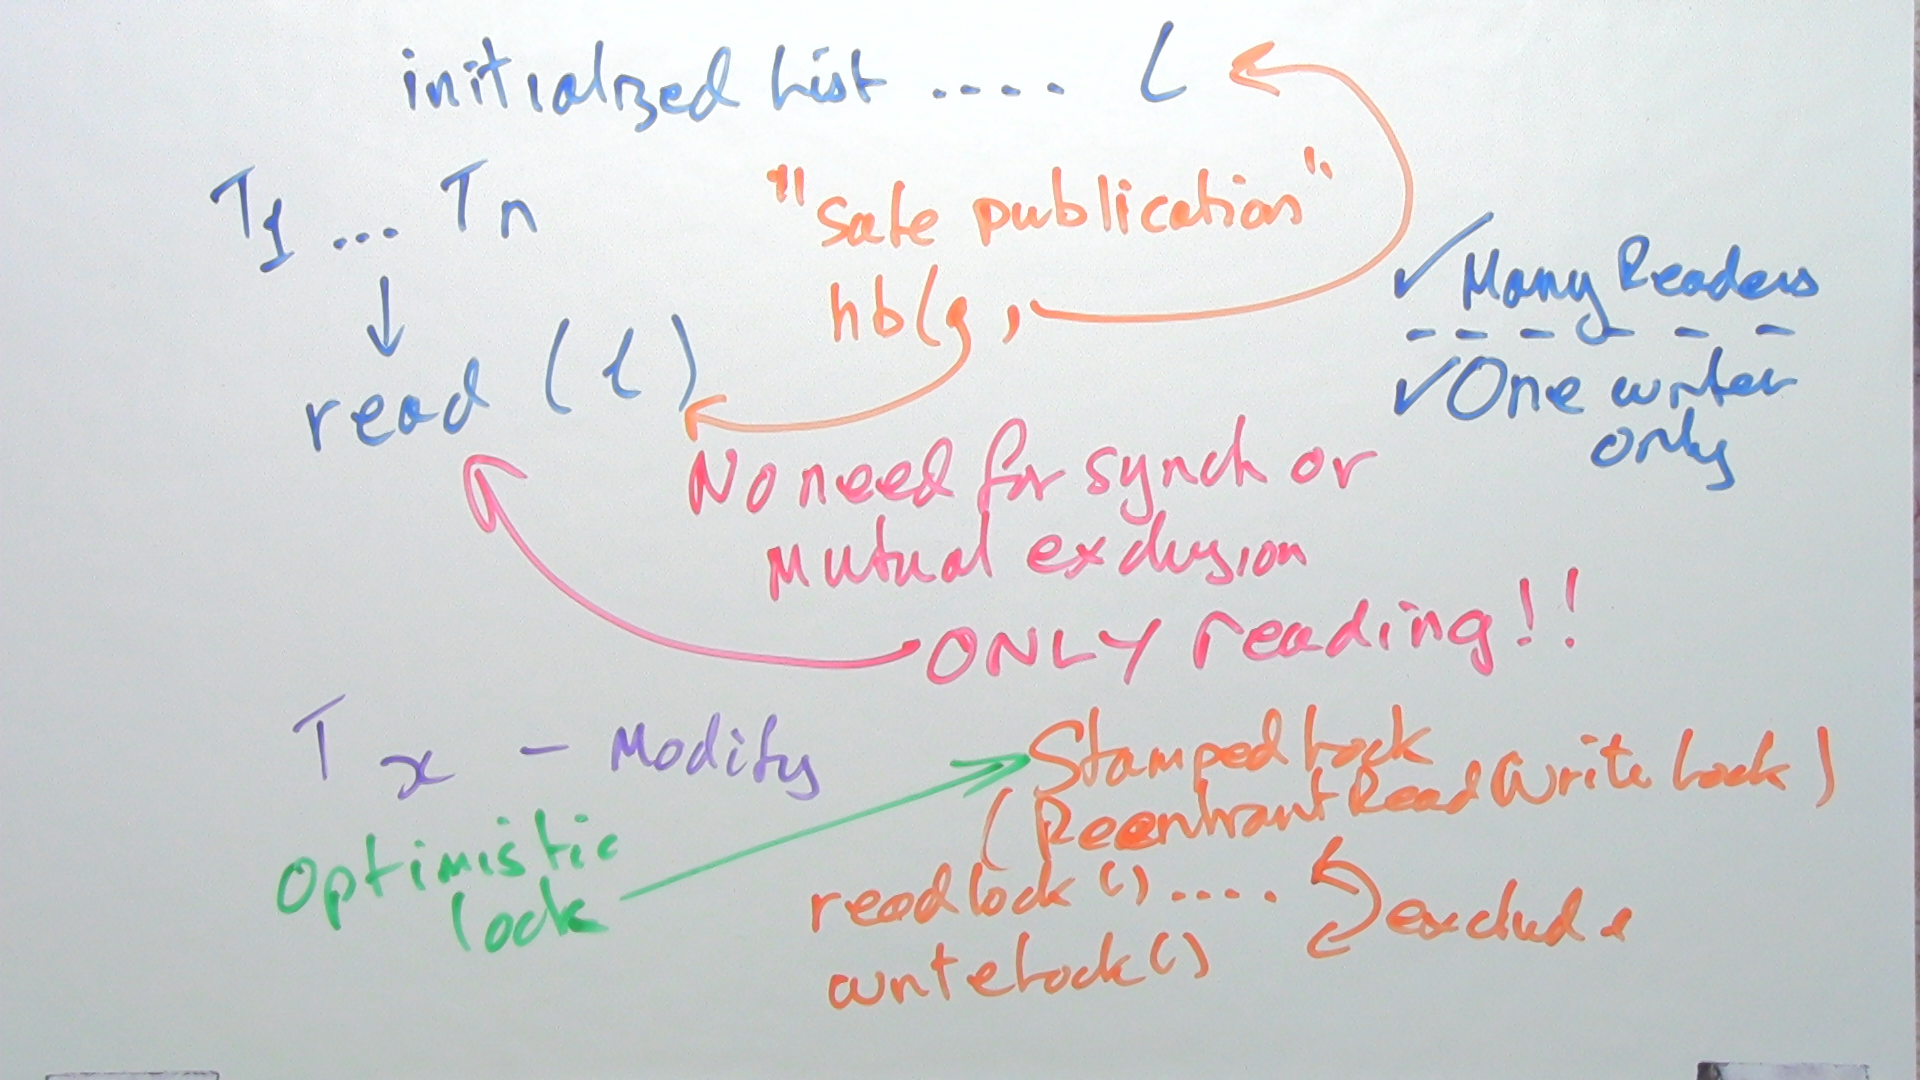 initialized List .... L
T1 ... Tn
"safe publication"
hb( ,
read (l)
✓ Many Readers
✓ One writer
only
No need for synch or
Mutual exclusion
ONLY reading!!
Tx - Modify
Optimistic
lock
StampedLock
(ReentrantReadWriteLock)
readlock() ....
writeLock()
exclude